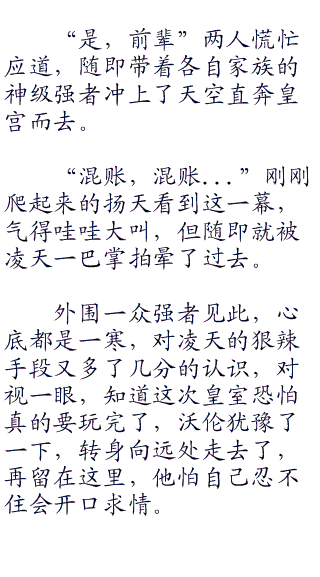 “是，前辈”两人慌忙
应道，随即带着各自家族的
神级强者冲上了天空直奔皇
宫而去。
“混账，混账...”刚刚
爬起来的扬天看到这一幕，
气得哇哇大叫，但随即就被
凌天一巴掌拍晕了过去。
外围一众强者见此，心
底都是一寒，对凌天的狠辣
手段又多了几分的认识，对
视一眼，知道这次皇室恐怕
真的要玩完了，沃伦犹豫了
一下，转身向远处走去了，
再留在这里，他怕自己忍不
住会开口求情。